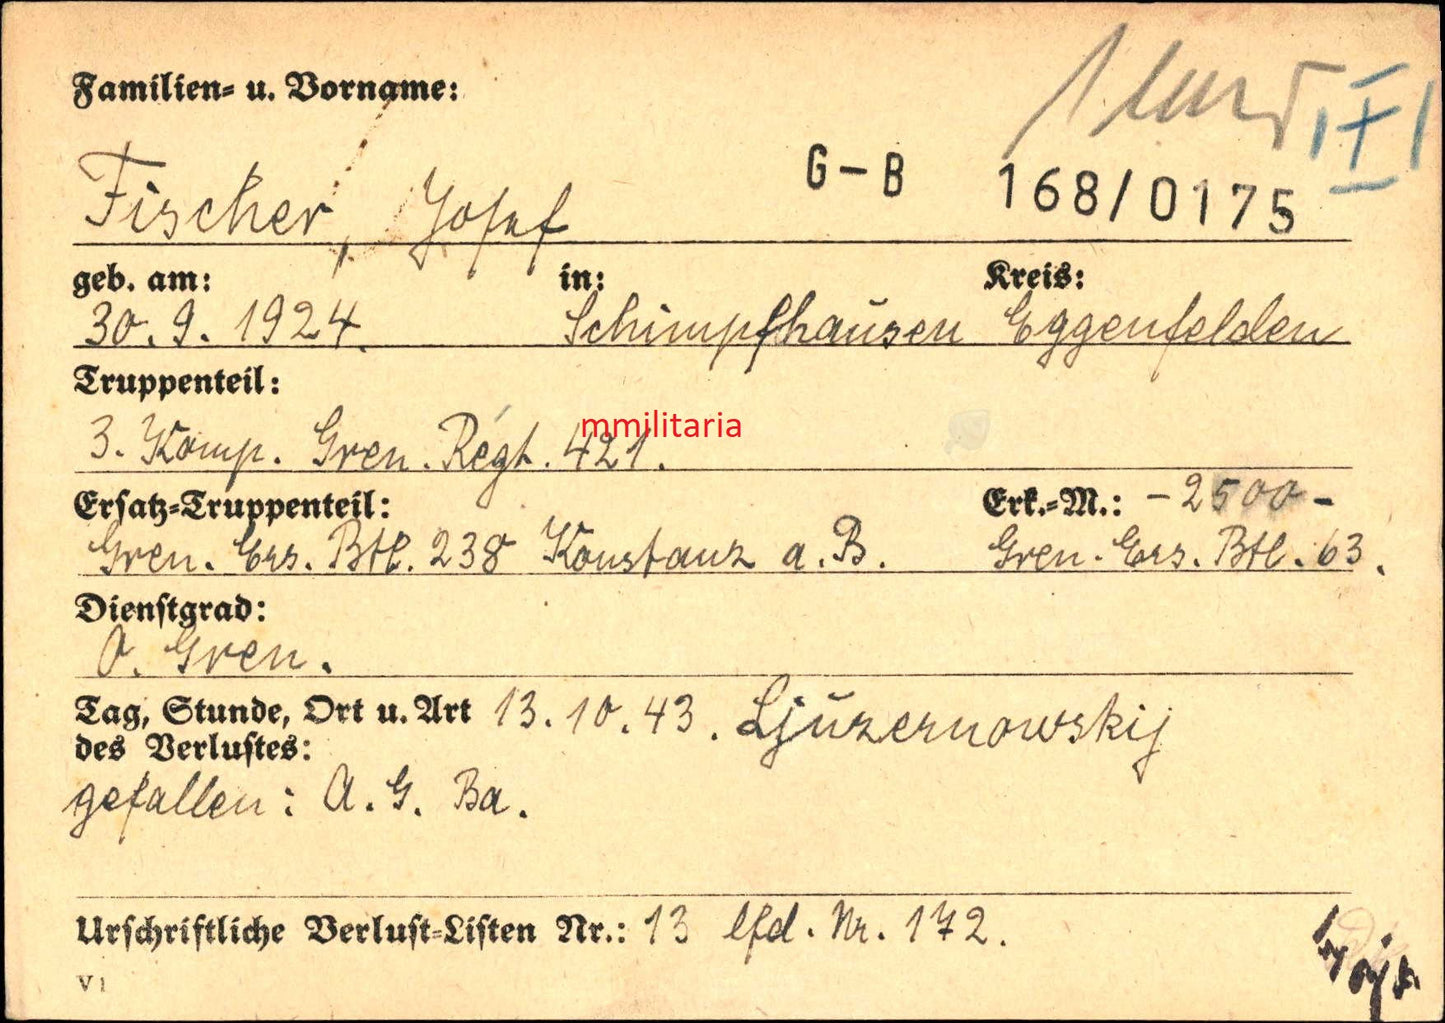 Familien- u. Vorname:
G-B 168/0175
Fischer, Josef
geb. am: in: Kreis:
30.9.1924. Schimpfhausen Eggenfelden
Truppenteil:
mmilitaria
3. Komp. Gren. Regt. 421.
Ersatz-Truppenteil: Erk.-M.: -2500-
Gren. Ers. Btl. 238 Konstanz a. B. Gren. Ers. Btl. 63.
Dienstgrad:
O. Gren.
Tag, Stunde, Ort u. Art 13.10.43. Ljuzernowskij
des Verlustes:
gefallen: A. G. Ba.
Urschriftliche Verlust-Listen Nr.: 13 lfd. Nr. 172.
V 1